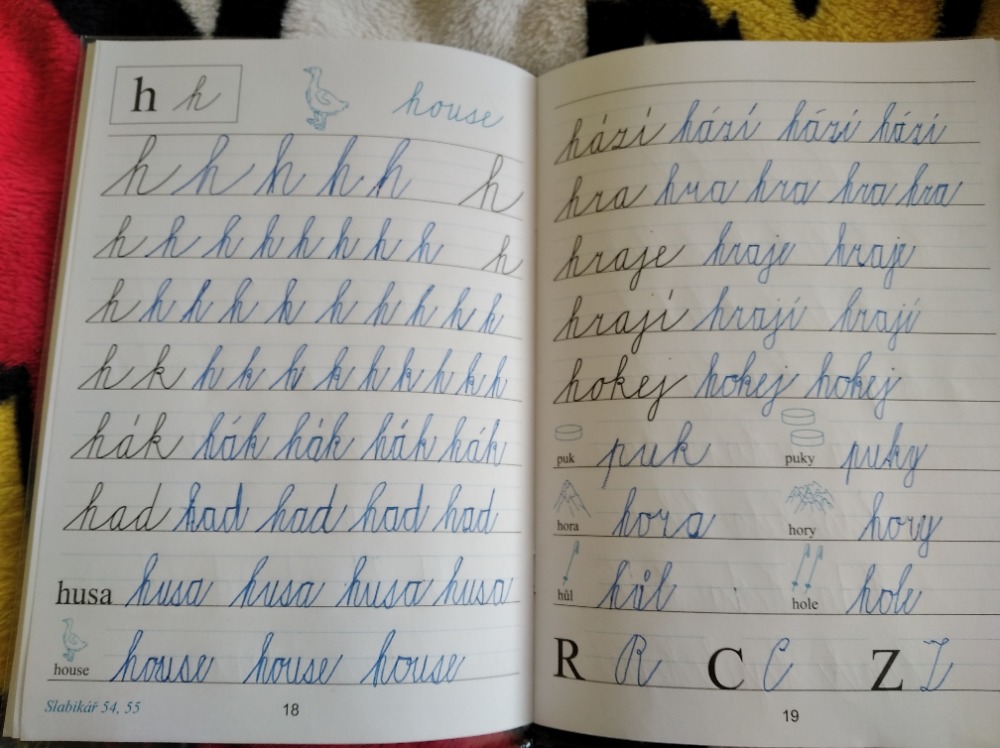 h h house
h h h h h h
h h h h h h h h h
h h h h h h h h h h
h k h k h k h k h k h
hák hák hák hák hák
had had had had had
husa husa husa husa husa
house house house house
Slabikář 54, 55
18
hází hází hází hází
hra hra hra hra hra
hraje hraje hraje
hrají hrají hrají
hokej hokej hokej
puk puk puky puky
hora hora hory hory
hůl hůl hole hole
R R C C Z Z
19